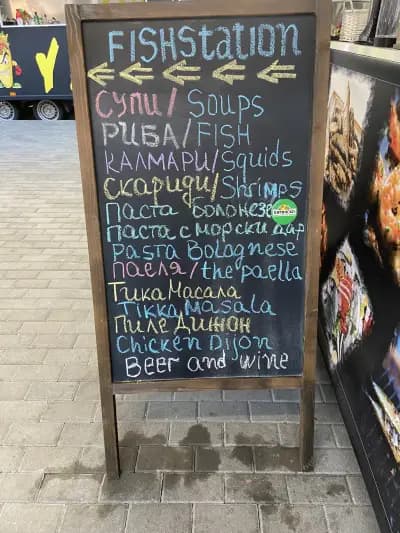 FISHStation
СУПИ/ SOUPS
РИБА/FISH
КАЛМАРИ/Squids
Скариди/Shrimps
Паста Болонезе
Паста с морски дар
Pasta Bolognese
Паеля/the paella
Тика Масала
Tikka Masala
Пиле Дижон
Chicken Dijon
Beer and wine